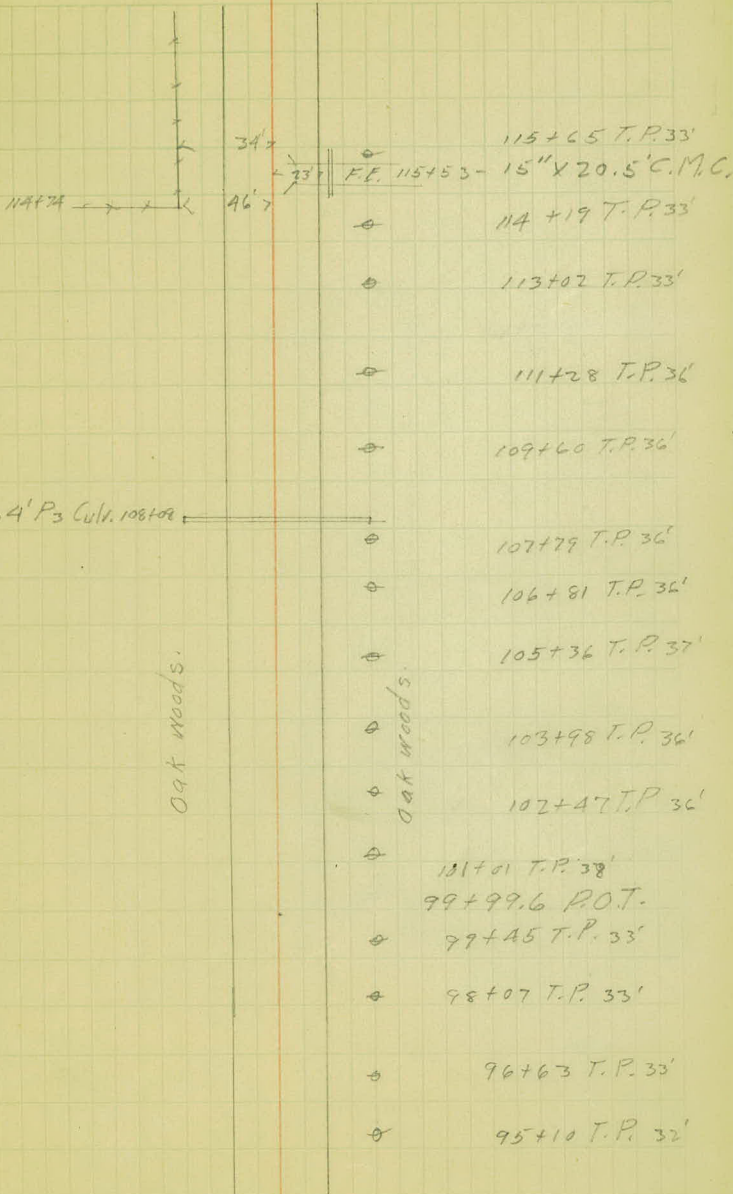 115+65 T.P. 33'
34'
23' F.E. 115+53 - 15" X 20.5' C.M.C.
114+74 46'
114+19 T.P. 33'
113+02 T.P. 33'
111+28 T.P. 36'
109+60 T.P. 36'
4' P3 Culv. 108+08
107+79 T.P. 36'
106+81 T.P. 36'
105+36 T.P. 37'
Oak woods.
Oak woods.
103+98 T.P. 36'
102+47 T.P. 36'
101+01 T.P. 38'
99+99.6 P.O.T.
99+45 T.P. 33'
98+07 T.P. 33'
96+63 T.P. 33'
95+10 T.P. 32'